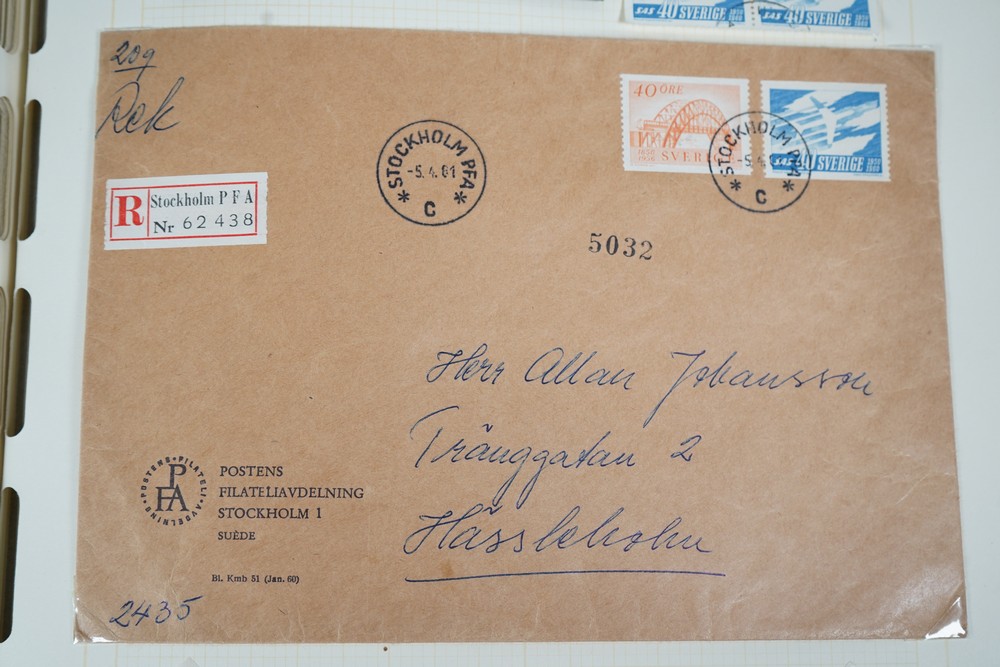 SAS 40 SVERIGE 1958 1960 SAS 40 SVERIGE 1958 1960
20g
Rek
R Stockholm P F A
Nr 62438
STOCKHOLM PFA
-5.4.61
C
40 ÖRE
1858 1958 SVERIGE
SAS 40 SVERIGE 1958 1960
STOCKHOLM PFA
-5.4.61
C
5032
Herr Allan Johansson
Tränggatan 2
Hässleholm
POSTENS FILATELI AVDELNING
PFA
POSTENS
FILATELIAVDELNING
STOCKHOLM 1
SUÈDE
Bl. Kmb 51 (Jan. 60)
2435